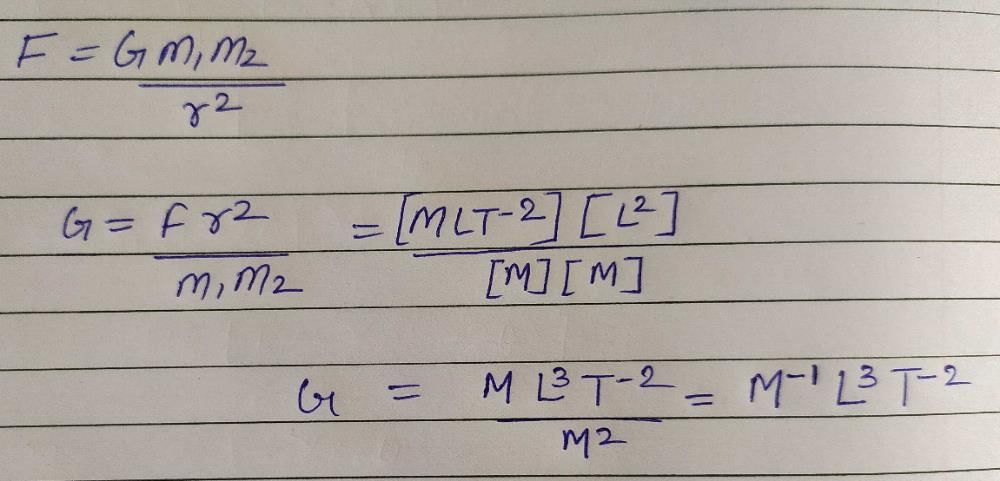 F = G m₁ m₂ / r²
G = F r² / m₁ m₂ = [MLT⁻²] [L²] / [M] [M]
G = M L³ T⁻² / M² = M⁻¹ L³ T⁻²